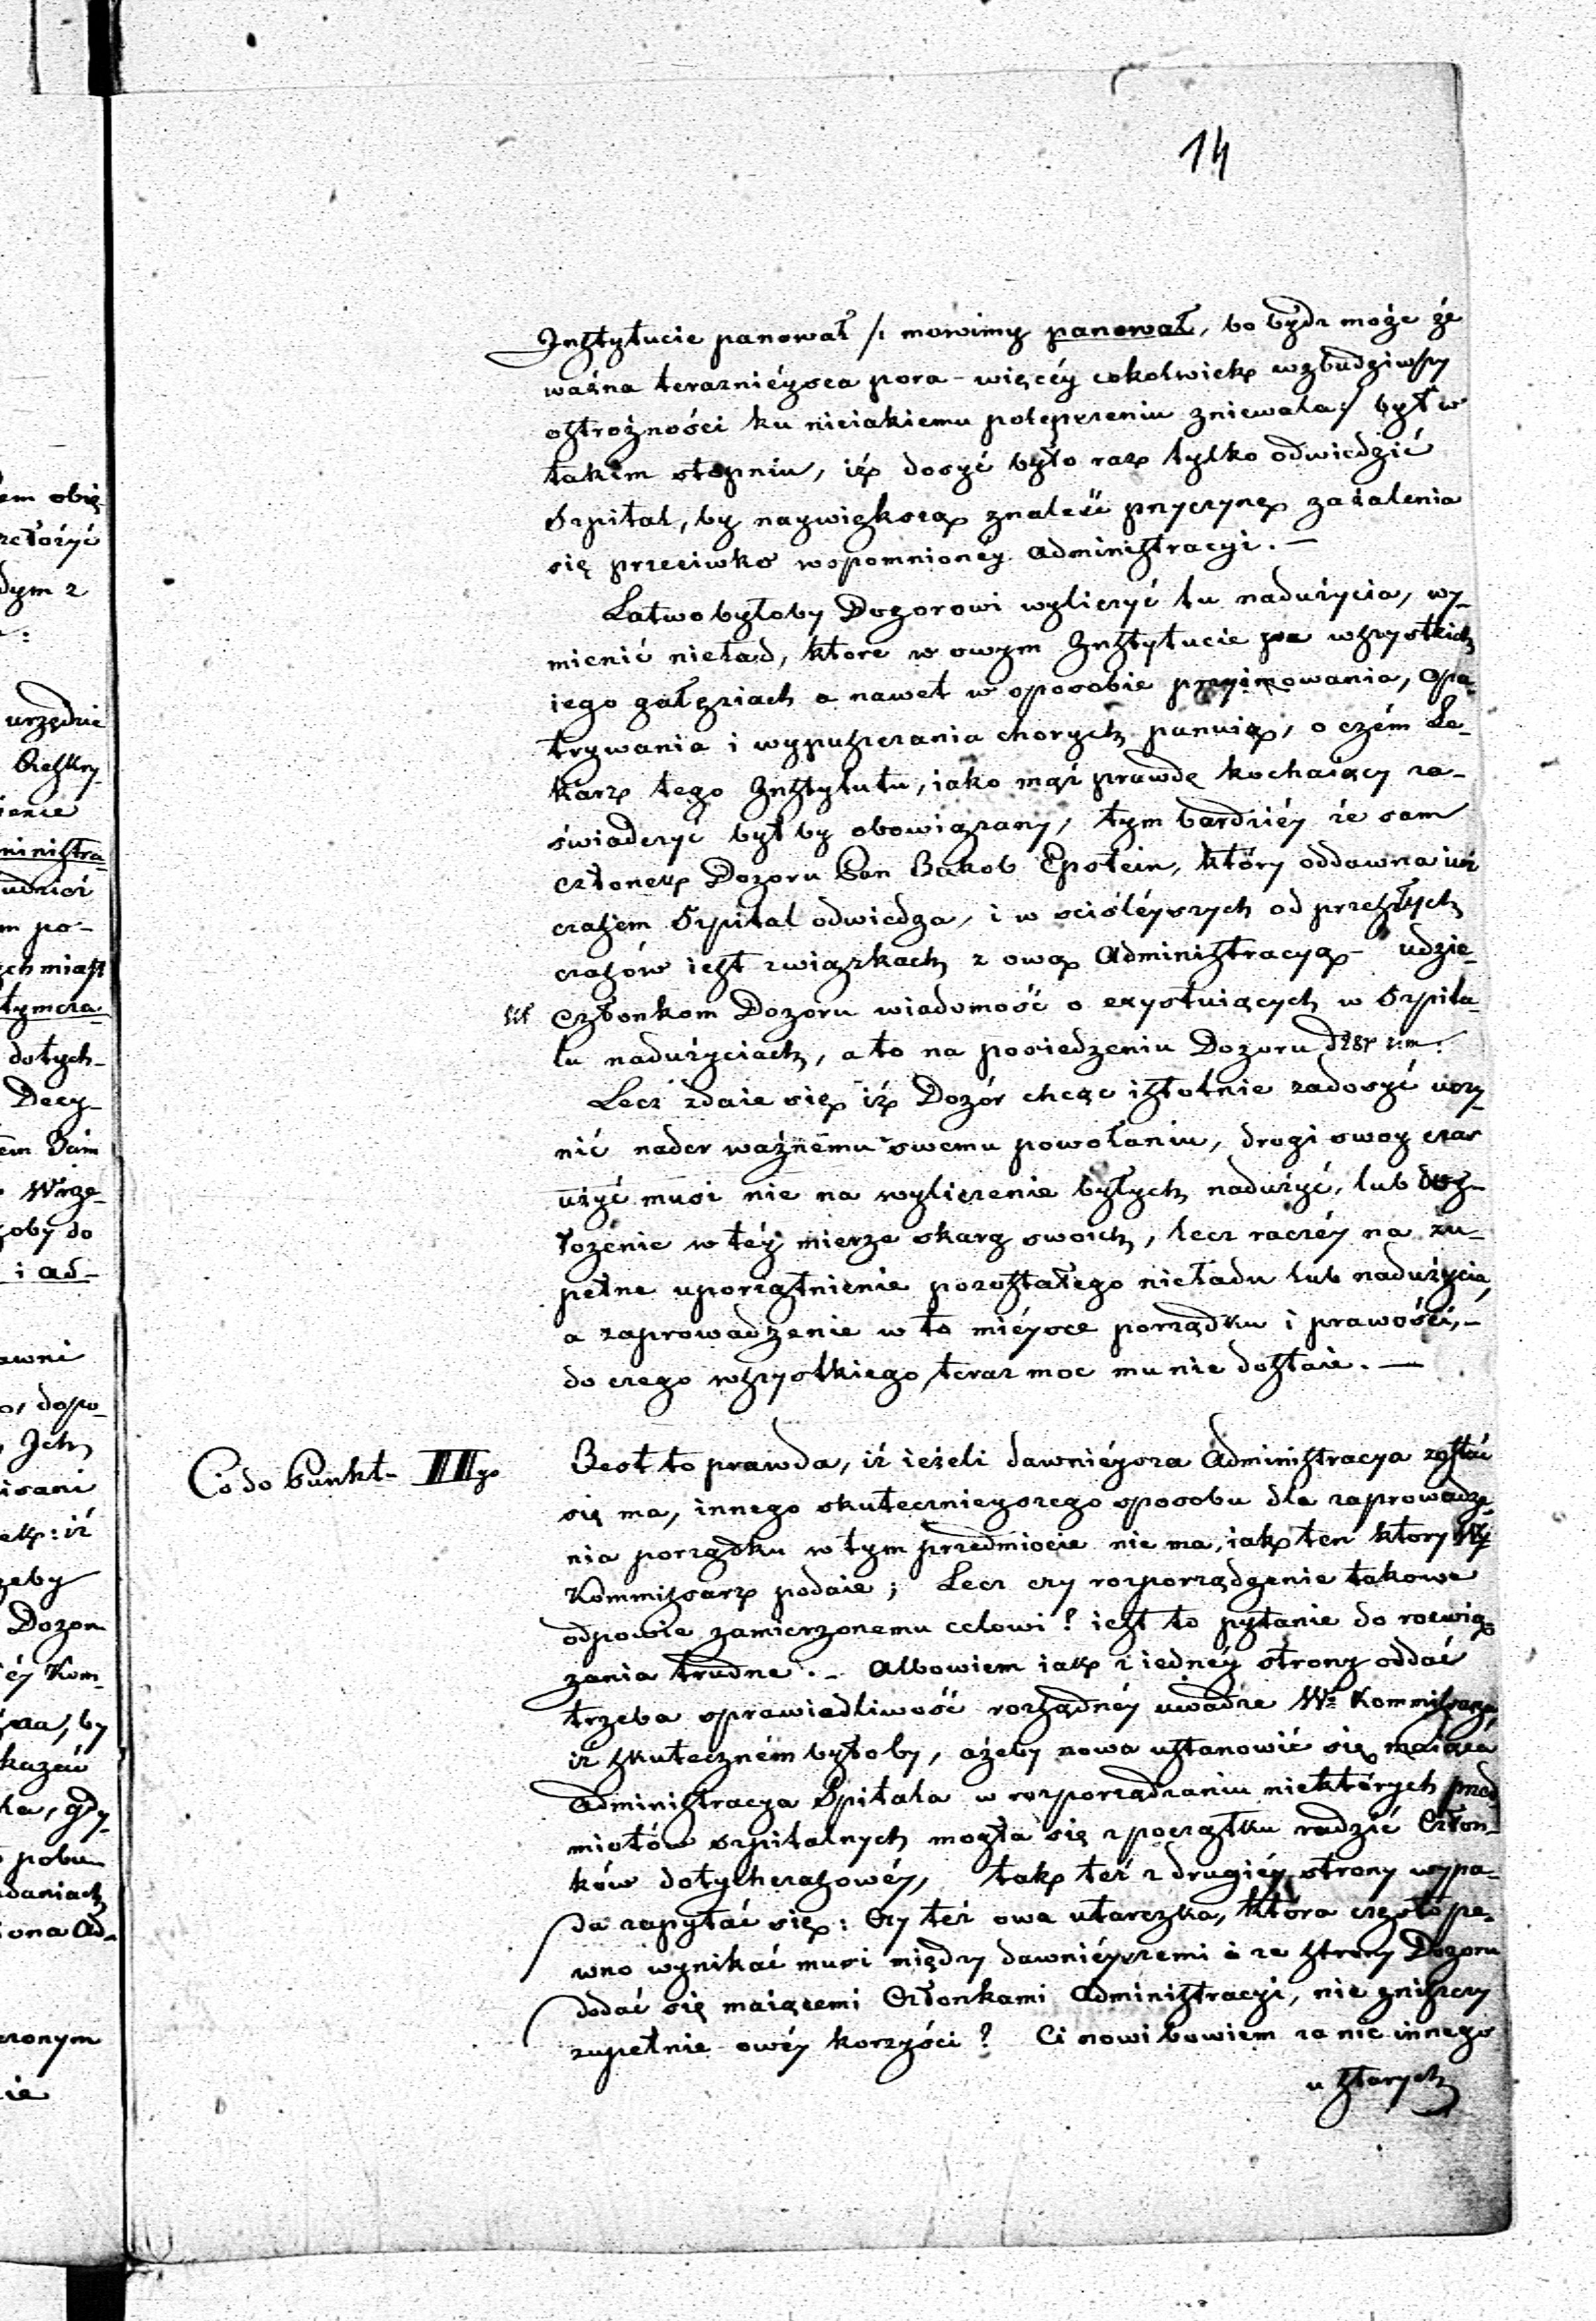 14
Instytucie panował /: mowimy panował, bo bydz może że
ważna teraznieysza pora – więcéy cokolwiek wzbudziwszy
ostrożności ku nieiakiemu polepszeniu zniewala :/ był w
takim stopniu, iż dosyć było raz tylko odwiedzić
Szpital, by naywiększą znaleść przyczynę zażalenia
się przeciwko wspomnionéy Administracyi. –
Łatwo byłoby Dozorowi wyliczyć tu nadużycia, wy-
mienić nieład, które w owym Instytucie we wszystkich
iego gałęziach a nawet w sposobie przyimowania, opa-
trywania i wypuszczania chorych panuią, o czém Le-
karz tego Instytutu, iako mąż prawdę kochaiący za-
świadczyć był by obowiązany, tym bardziéy że sam
członek Dozoru Pan Jakob Epstein, który oddawna iuż
czasem Szpital odwiedza, i w sciśléyszych od przeszłych
czasów iest związkach z ową Administracyą – udzie-
lił Członkom Dozoru wiadomość o exystuiących w Szpita-
lu nadużyciach, a to na posiedzeniu Dozoru d. 28 z: m.
Lecz zdaie się iż Dozór chcąc istotnie zadosyć uczy-
nić nader ważnemu swemu powołaniu, drogi swoy czas
użyć musi nie na wyliczenie byłych nadużyć, lub
łożenie w téy mierze skarg swoich, lecz raczéy na zu-
pełne uporządnienie pozostałego nieładu lub nadużycia,
a zaprowadzenie w to mieysce porządku i prawości, –
do czego wszystkiego, teraz moc mu nie dostaie. –
Co do Punkt– III go
Jest to prawda, iż ieżeli dawniéysza Administracya zostać
się ma, innego skutecznieyszego sposobu dla zaprowadze-
nia porządku w tym przedmiocie nie ma, iak ten który W.
Kommissarz podaie; Lecz czy rozporządzenie takowe
odpowie zamierzonemu celowi? iest to pytanie do rozwią-
zania trudne. – Albowiem iak z iednéy strony oddać
trzeba sprawiedliwość rozsądnéy uwadze W. Kommissarza,
iż skuteczném byłoby, ażeby nowa ustanowić się maiąca
Administracya Szpitala w rozporządzaniu niektórych przed-
miotów szpitalnych mogła się z początku radzić Człon-
ków dotychczasowéy, tak też z drugiéy strony wypa-
da zapytać się: Czy też owa utarczka, która często pe-
wno wynikać musi między dawniéyszemi a ze strony Dozoru
dodać się maiącemi Członkami Administracyi, nie zniszczy
zupełnie owéy korzyści? Ci nowi bowiem za nic innego
u starych